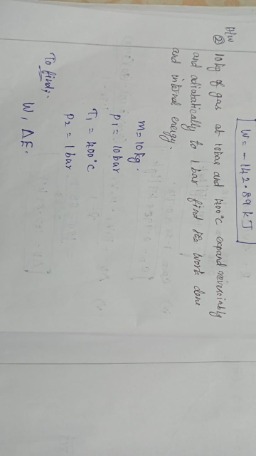 W = -142.89 kJ
H/W
② 10kg of gas at 10bar and 400°C expand reversiably
and adiabatically to 1 bar find its work done
and internal energy.
m = 10 kg.
P1 = 10 bar
T1 = 400°C
P2 = 1 bar
To find:
W, ΔE.